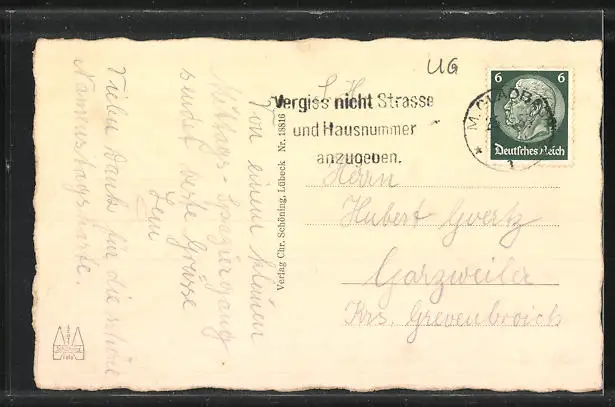 UG
6 6
Deutsches Reich
M. GLADBACH
Vergiss nicht Strasse
und Hausnummer
anzugeben.
S. H.
Herrn
Hubert Gvertz
Garzweiler
Krs. Grevenbroich
Verlag Chr. Schöning, Lübeck Nr. 18816
Von einem kleinen
Mittags-Spaziergang
sendet beste Grüsse
Vielen Dank für die schöne
Namenstagskarte.